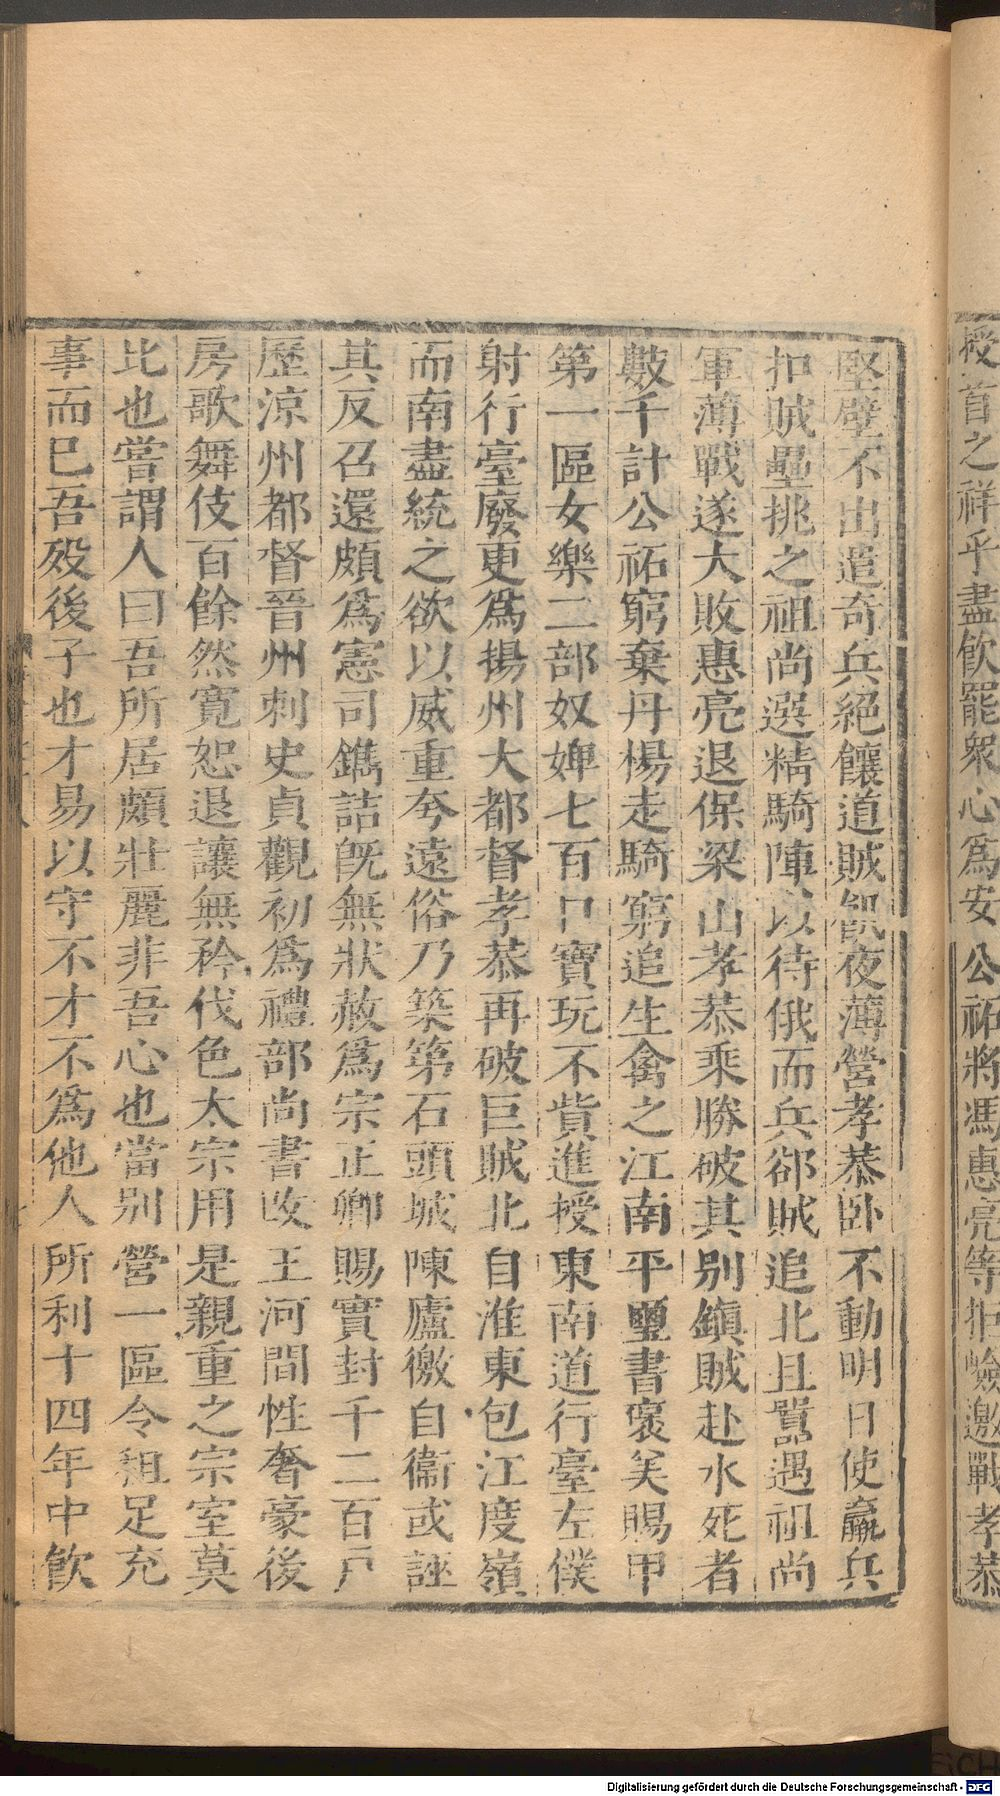 授首之祥乎盡飲罷衆心爲安公祏將馮惠亮等拒嶮邀戰孝恭
堅壁不出遣奇兵絶饟道賊飢夜薄營孝恭臥不動明日使羸兵
扣賊壘挑之祖尚選精騎陣以待俄而兵郤賊追北且囂遇祖尚
軍薄戰遂大敗惠亮退保梁山孝恭乘勝破其別鎮賊赴水死者
數千計公祏窮棄丹楊走騎窮追生禽之江南平璽書襃美賜甲
第一區女樂二部奴婢七百口寶玩不貲進授東南道行臺左僕
射行臺廢更爲揚州大都督孝恭再破巨賊北自淮東包江度嶺
而南盡統之欲以威重夸遠俗乃築第石頭城陳廬徼自衞或誣
其反召還頗爲憲司鐫詰旣無狀赦爲宗正卿賜實封千二百戶
歷涼州都督晉州刺史貞觀初爲禮部尚書改王河間性奢豪後
房歌舞伎百餘然寬恕退讓無矜伐色太宗用是親重之宗室莫
比也嘗謂人曰吾所居頗壯麗非吾心也當別營一區令粗足充
事而已吾歿後子也才易以守不才不爲他人所利十四年中飲
Digitalisierung gefördert durch die Deutsche Forschungsgemeinschaft - DFG